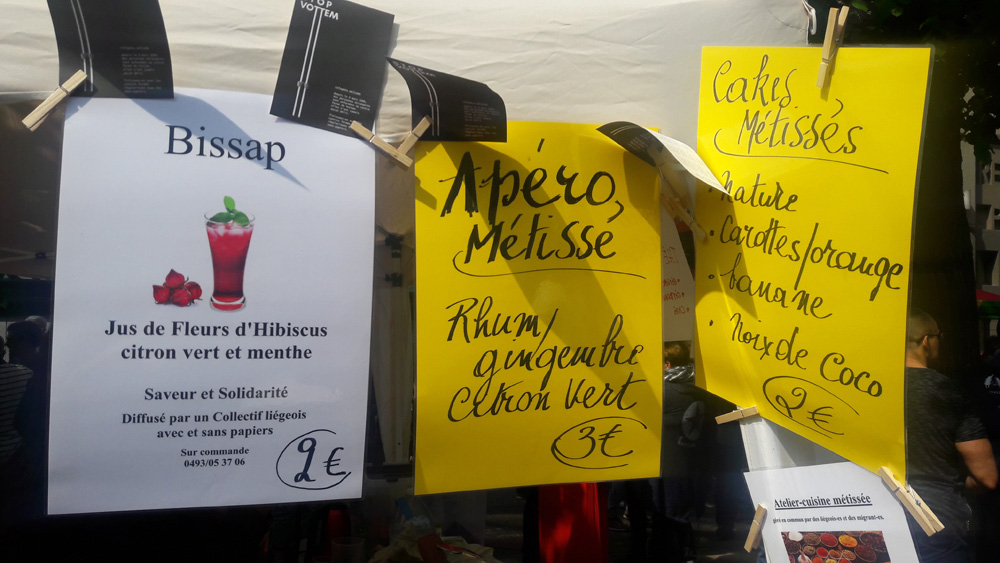 OP
VOTTEM
Bissap
Jus de Fleurs d'Hibiscus
citron vert et menthe
Saveur et Solidarité
Diffusé par un Collectif liégeois
avec et sans papiers
Sur commande
0493/05 37 06
2€
Apéro,
Métisse
Rhum/
gingembre
Citron Vert
3€
Cakes,
Métissés
• Nature
• Carottes/orange
• banane
• Noix de Coco
2€
Atelier-cuisine métissée
en commun par des liégeois-es et des migrant-es.